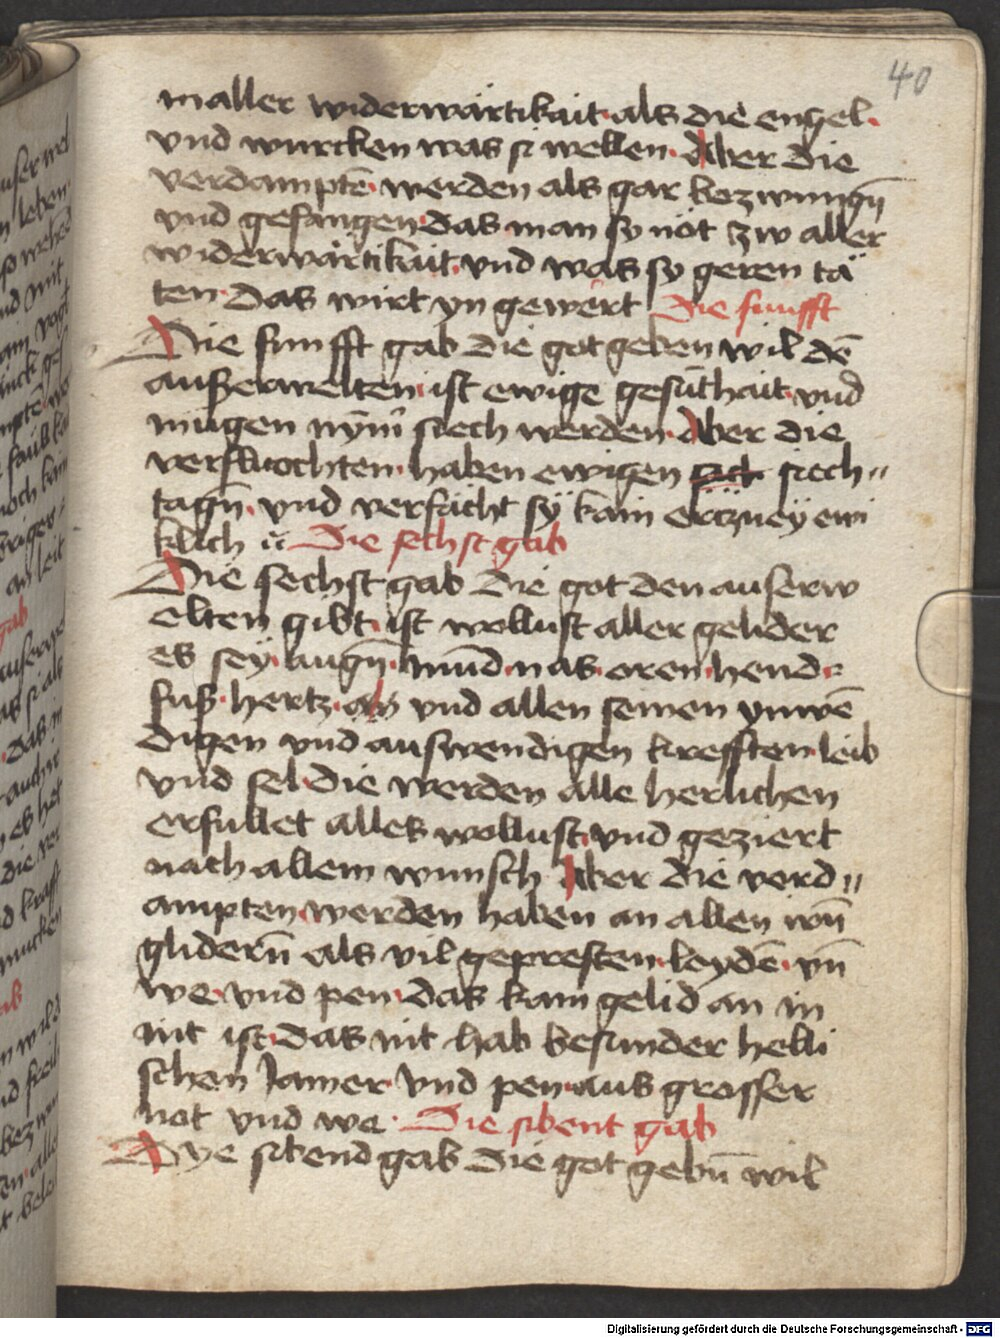 40
in aller widerwärtikait · als die engel ·
vnd wurcken was si wellen · Aber die
verdamptē · werden als gar bezwungn̄
vnd gefangen · das man sy nöt zw aller
widerwärtikait · vnd was sy geren tä
ten · Das wirt yn gewert Die funfft
Die funfft gab die got geben wil dē
außerwelten · ist ewige gesūthait · vnd
mugen nym̄ siech werden · Aber die
verfluochten · haben ewigen siech〃
tagn̄ · vnd verfächt sÿ kain ertzneÿ ewi
klich Die sechst gab
Die sechst gab die got den auserw
elten gibt · ist wollust aller gelider
es seÿ · augn̄ · mūd · nas · oren · hend ·
fuß · hertz · vnd allen seinen ynwē
digen vnd auswendigen krefften · leib
vnd sel · Die werden alle herlichen
erfullet alles wollust · vnd geziert
nach allem wunsch Aber die verd〃
ampten · werden haben an allen irn̄
glidern̄ als vil gepresten · leydē · vn̄
we · vnd pen · das kain gelid an in
nit ist · das nit hab besunder helli
schen Jamer · Vnd pen · aus grosser
not vnd we · Die sibent gab
Dye sibend gab die got gebn̄ wil
Digitalisierung gefördert durch die Deutsche Forschungsgemeinschaft - DFG